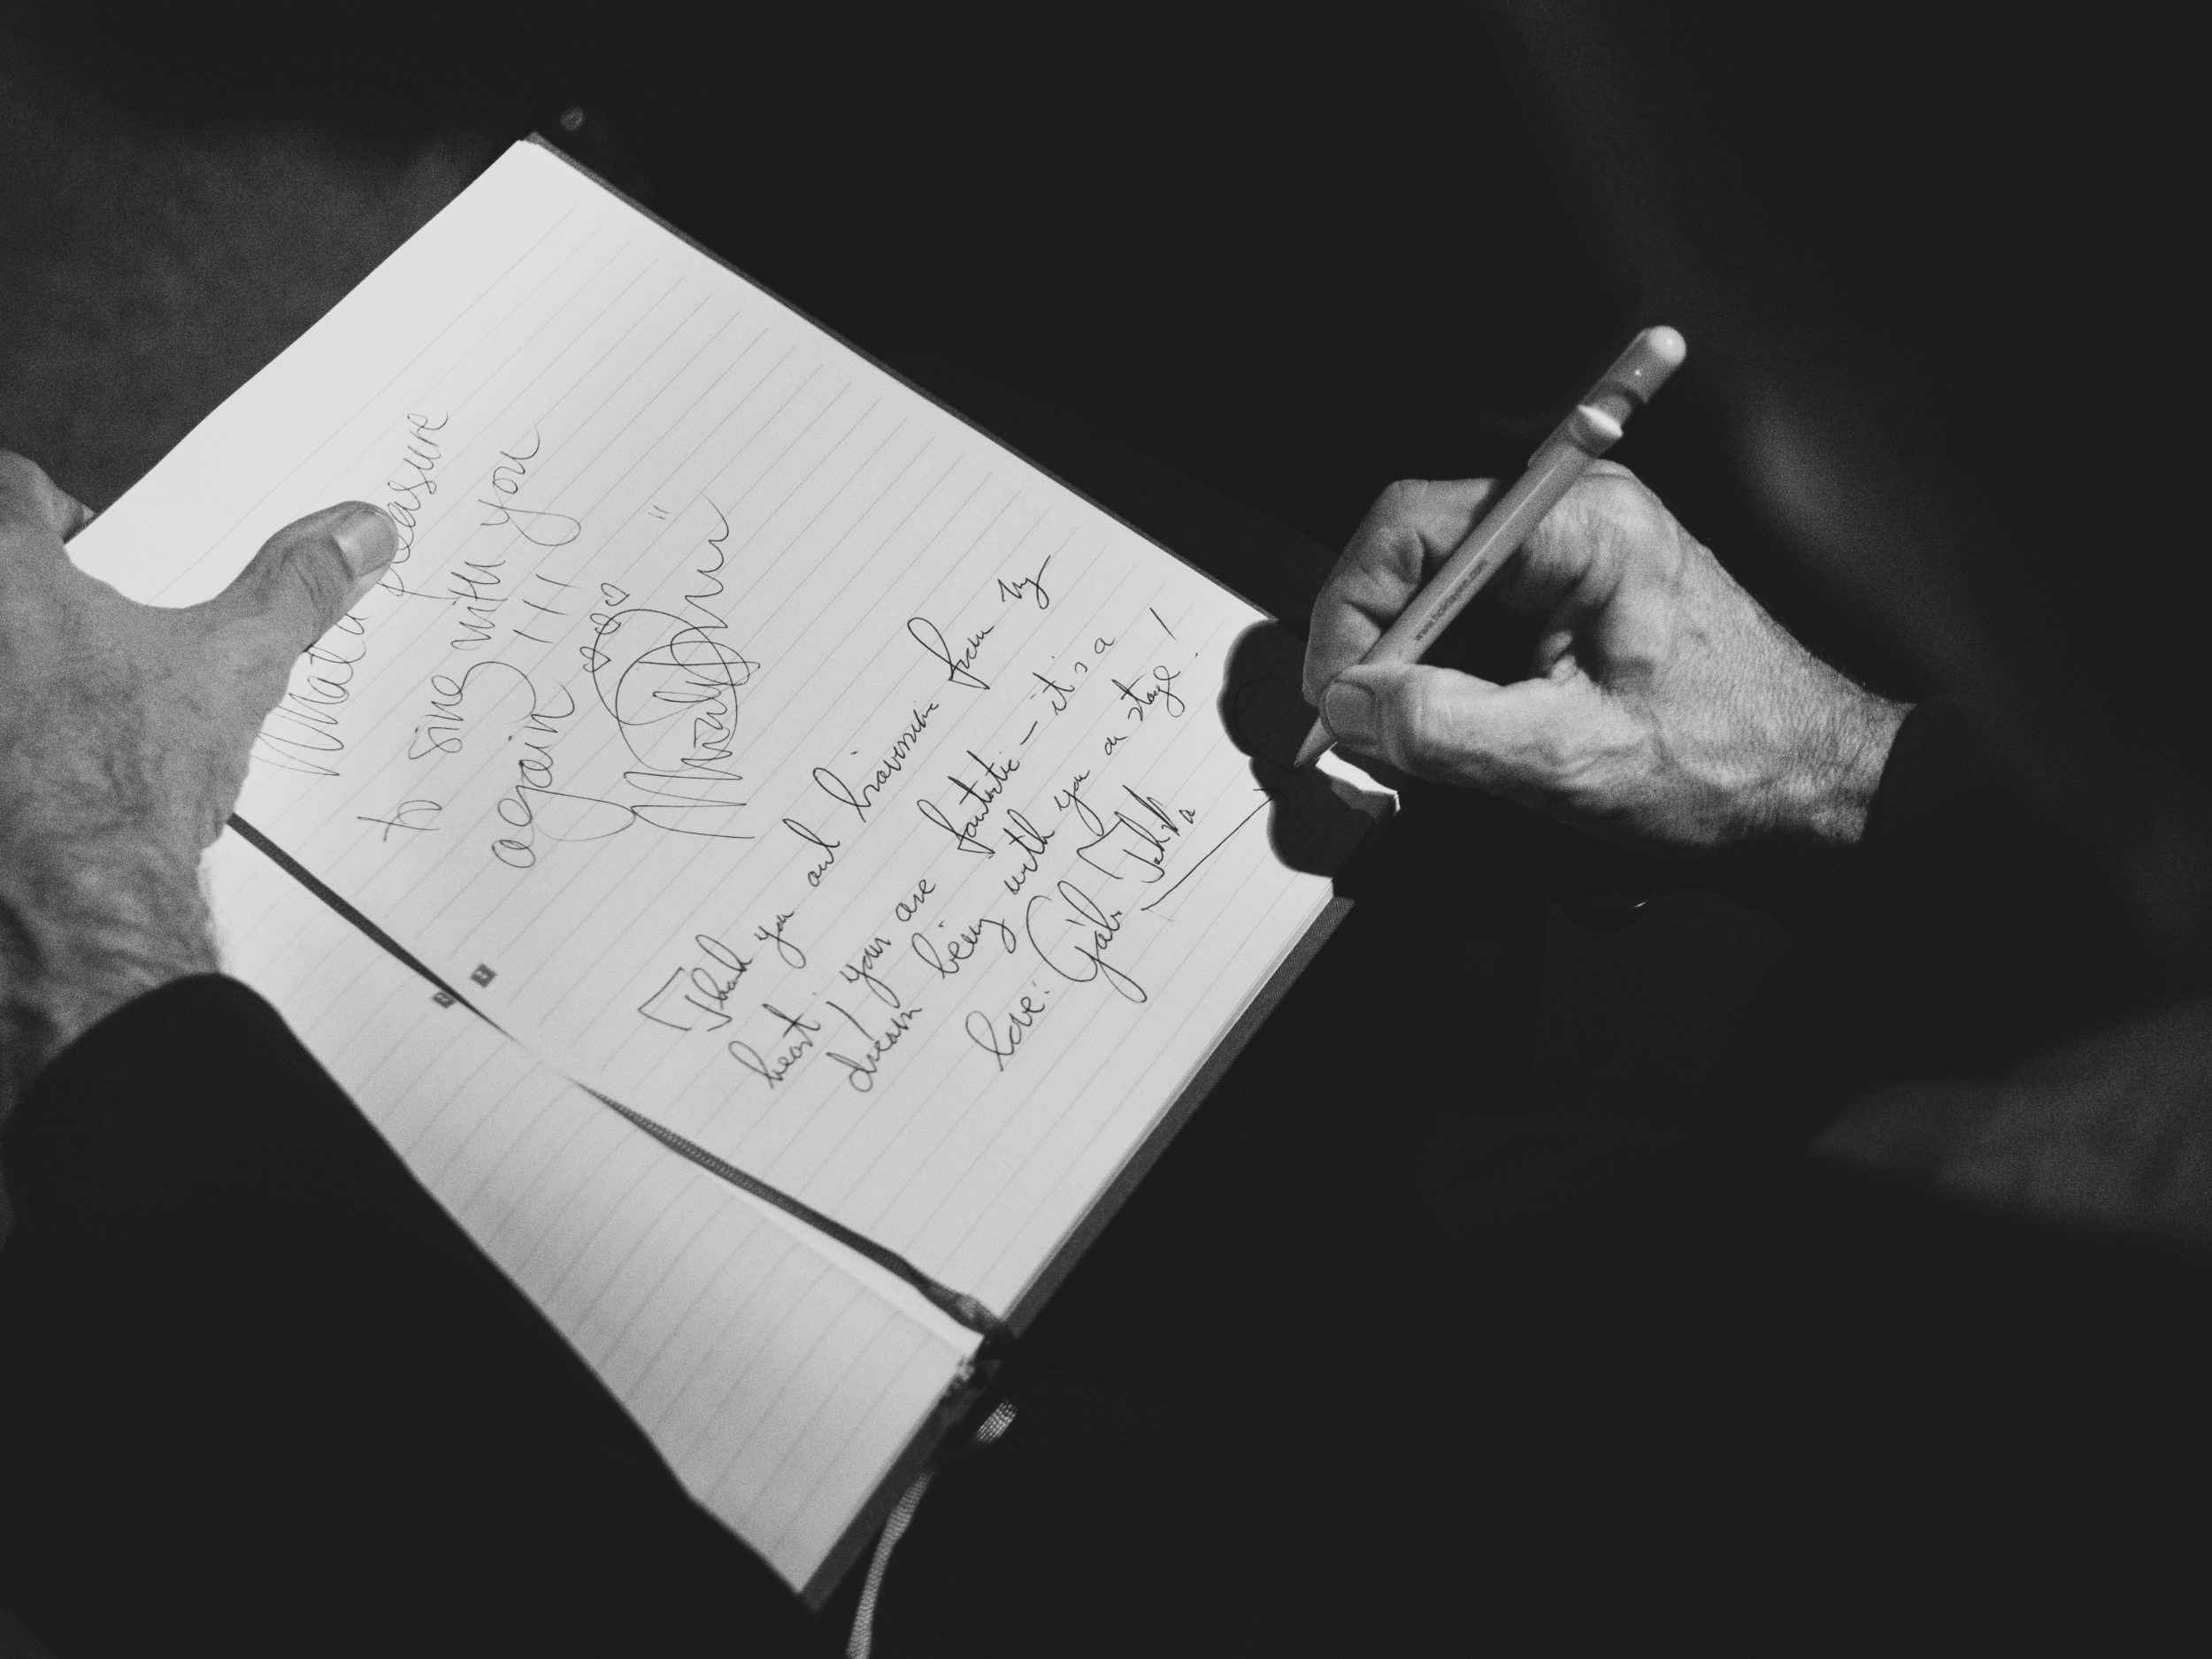 What a pleasure
to sing with you
again !!!
Thank you and bravissimi from my
heart, you are fantastic – it's a
dream being with you on stage!
love: Gabi